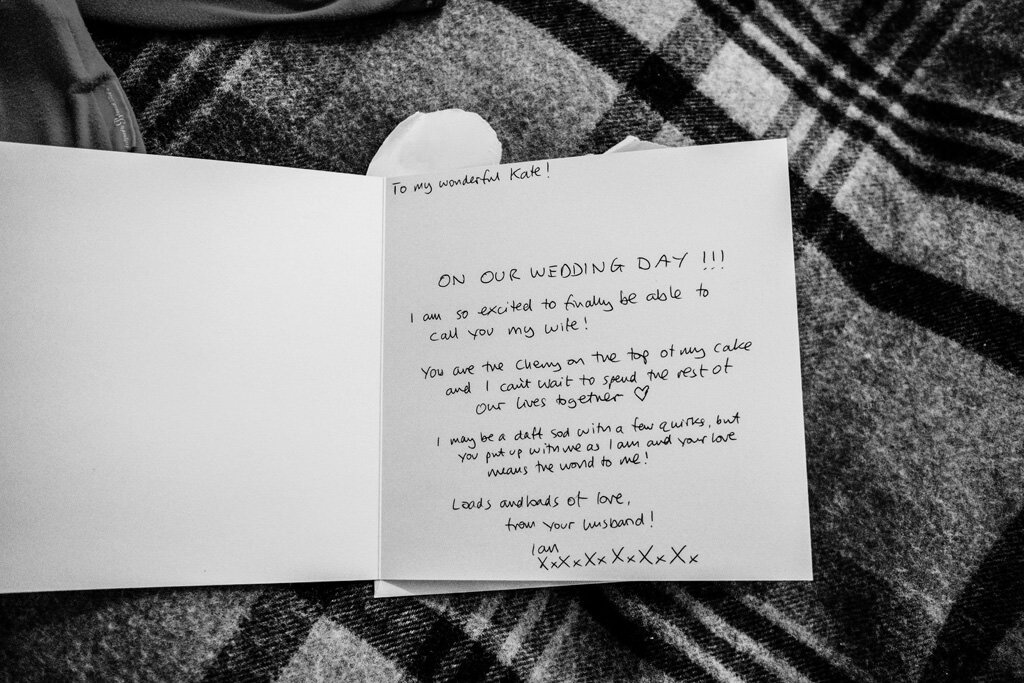 To my wonderful Kate!
ON OUR WEDDING DAY !!!
I am so excited to finally be able to
call you my wife!
You are the cherry on the top of my cake
and I can't wait to spend the rest of
our lives together ♡
I may be a daft sod with a few quirks, but
you put up with me as I am and your love
means the world to me!
Loads and loads of love,
from your husband!
Ian
XxXxXxXxXxXx